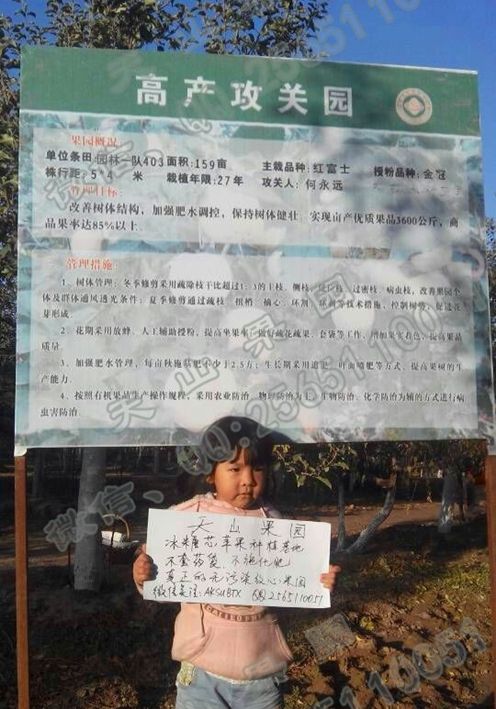 高产攻关园
果园概况
单位条田 园林一队403 面积:159亩 主栽品种:红富士 授粉品种:金冠
株行距:5*4 米 栽植年限:27年 攻关人:何永远
管理目标
改善树体结构，加强肥水调控，保持树体健壮，实现亩产优质果品3600公斤，商
品果率达85%以上。
管理措施:
1、树体管理:冬季修剪采用疏除枝干比超过1:3的主枝、侧枝、
过密枝、病虫枝，改善果园个
体及群体通风透光条件;夏季修剪通过疏枝、拟梢、摘心、环割、环剥等技术措施，控制树势，促进花
芽形成。
2、花期采用放蜂、人工辅助授粉，提高坐果率，做好疏花疏果、套袋等工作，增加果实着色，提高果品
质量。
3、加强肥水管理，每亩秋施基肥不少于2.5方;生长期采用追肥、叶面喷肥等方式，提高果树的生
产能力。
4、按照有机果品生产操作规程，采用农业防治、物理防治为主，生物防治、化学防治为辅的方式进行病
虫害防治。
天山果园
冰糖芯苹果种植基地
不套药袋、不施化肥
真正的无污染放心果园
微信关注:AKSUBTX QQ:2565110051
微信、QQ:2565110051
天山果园